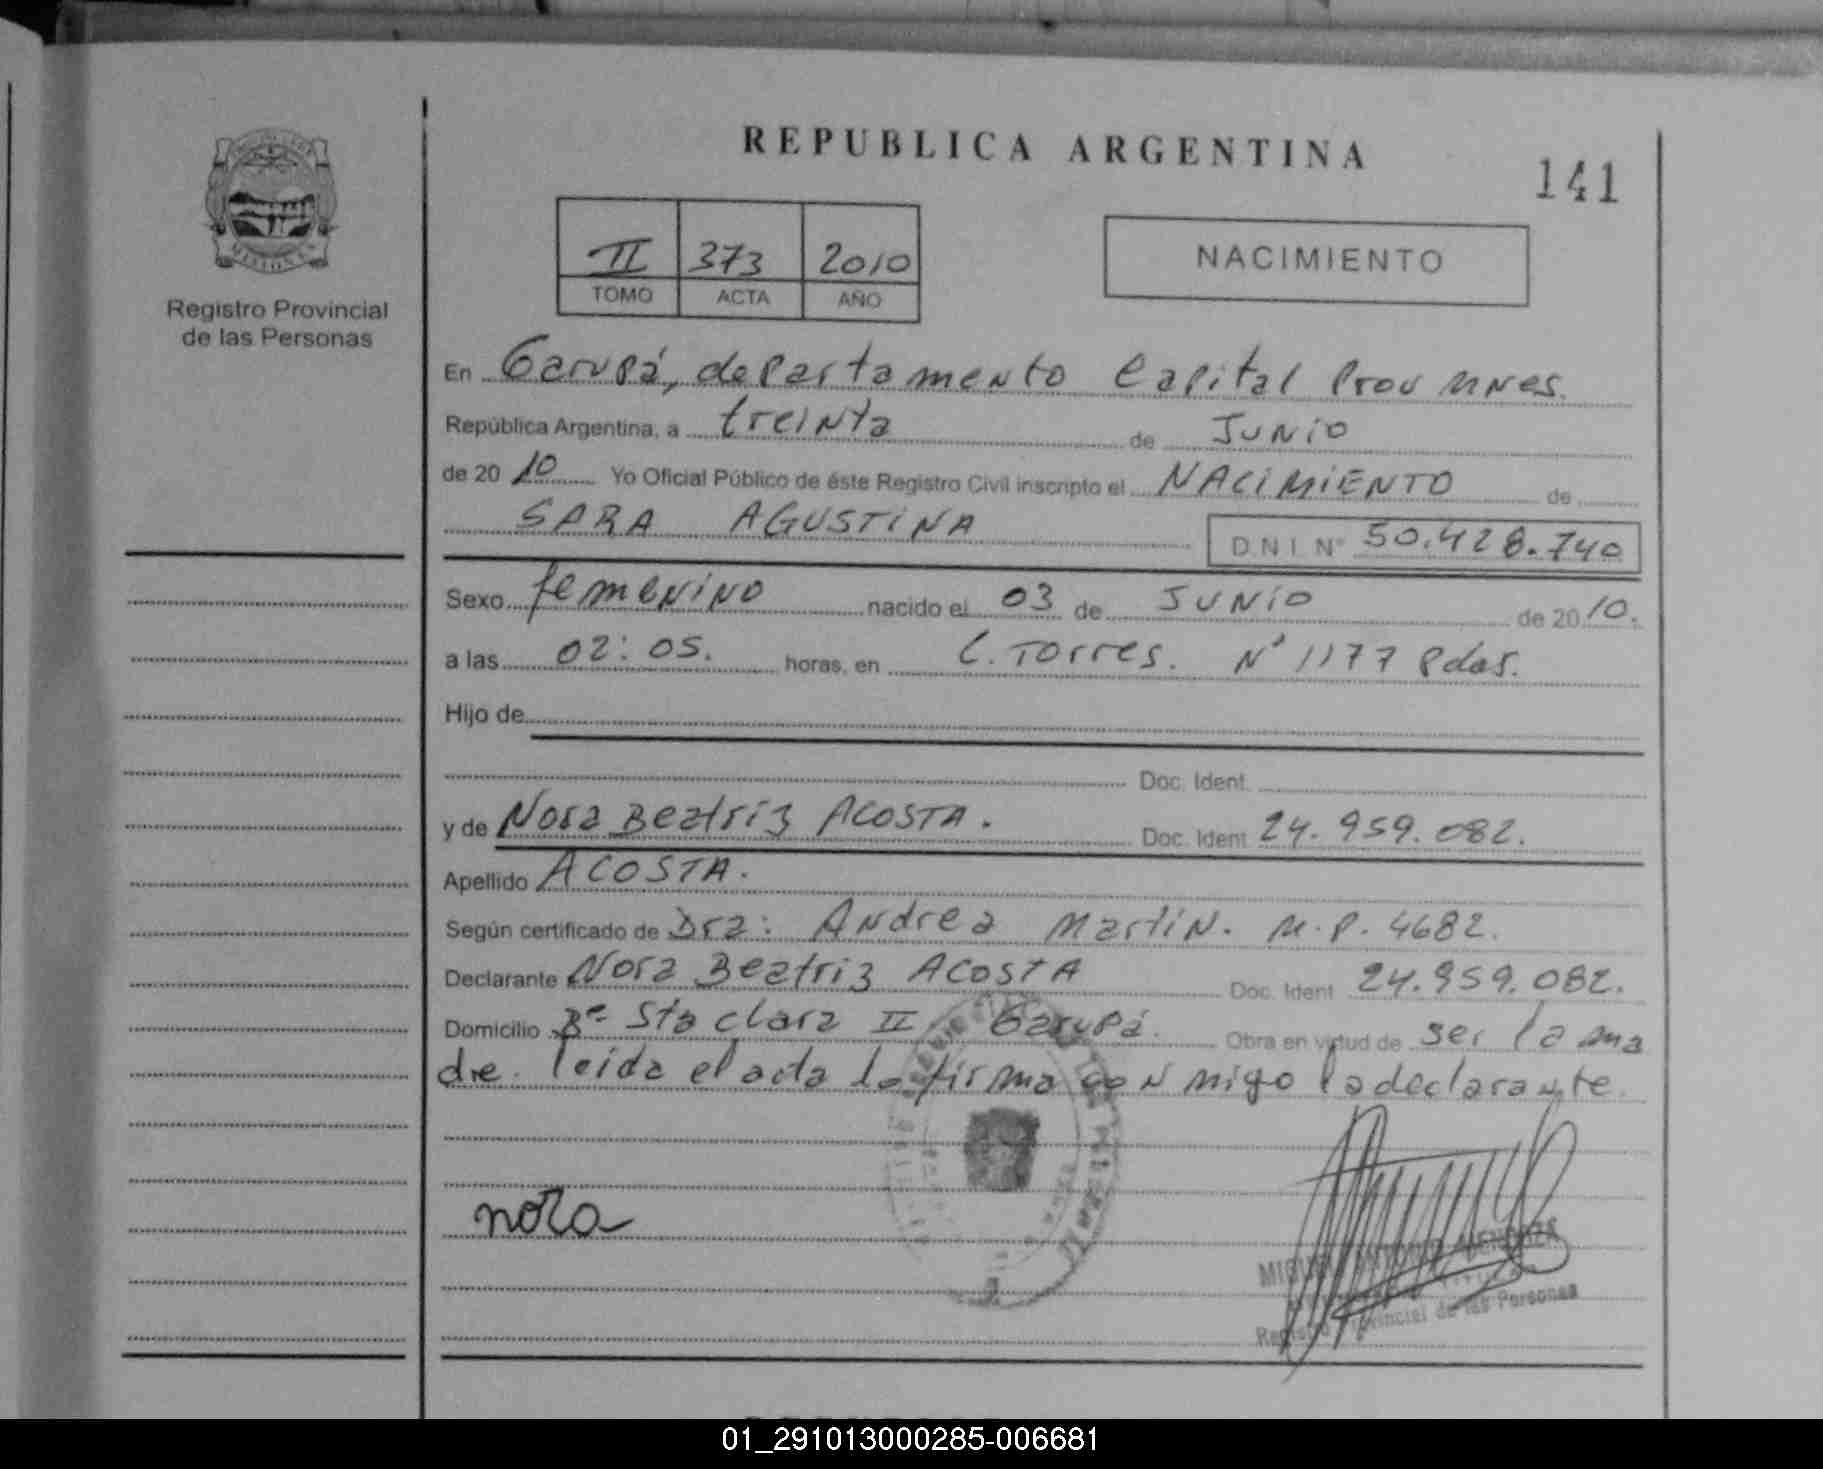 REPUBLICA ARGENTINA
141
MISIONES
Registro Provincial
de las Personas
II 373 2010
TOMO ACTA AÑO
NACIMIENTO
En Garupá, departamento Capital Prov Mnes.
República Argentina, a treinta de Junio
de 2010 Yo Oficial Público de éste Registro Civil inscripto el NACIMIENTO de
SARA AGUSTINA D.N.I. Nº 50.428.740
Sexo femenino nacido el 03 de JUNIO de 2010.
a las 02:05. horas, en C. Torres. Nº 1177 Pdas.
Hijo de
Doc. Ident.
y de Nora Beatriz ACOSTA. Doc. Ident 24.959.082.
Apellido ACOSTA.
Según certificado de Dra: Andrea Martin. M.P. 4682.
Declarante Nora Beatriz ACOSTA Doc. Ident 24.959.082.
Domicilio Bº Sta Clara II Garupá. Obra en virtud de ser la ma
dre. leida el acta la firma conmigo la declarante.
nora
MIGUEL ANTONIO MENDOZA
Registro Provincial de las Personas
01_291013000285-006681